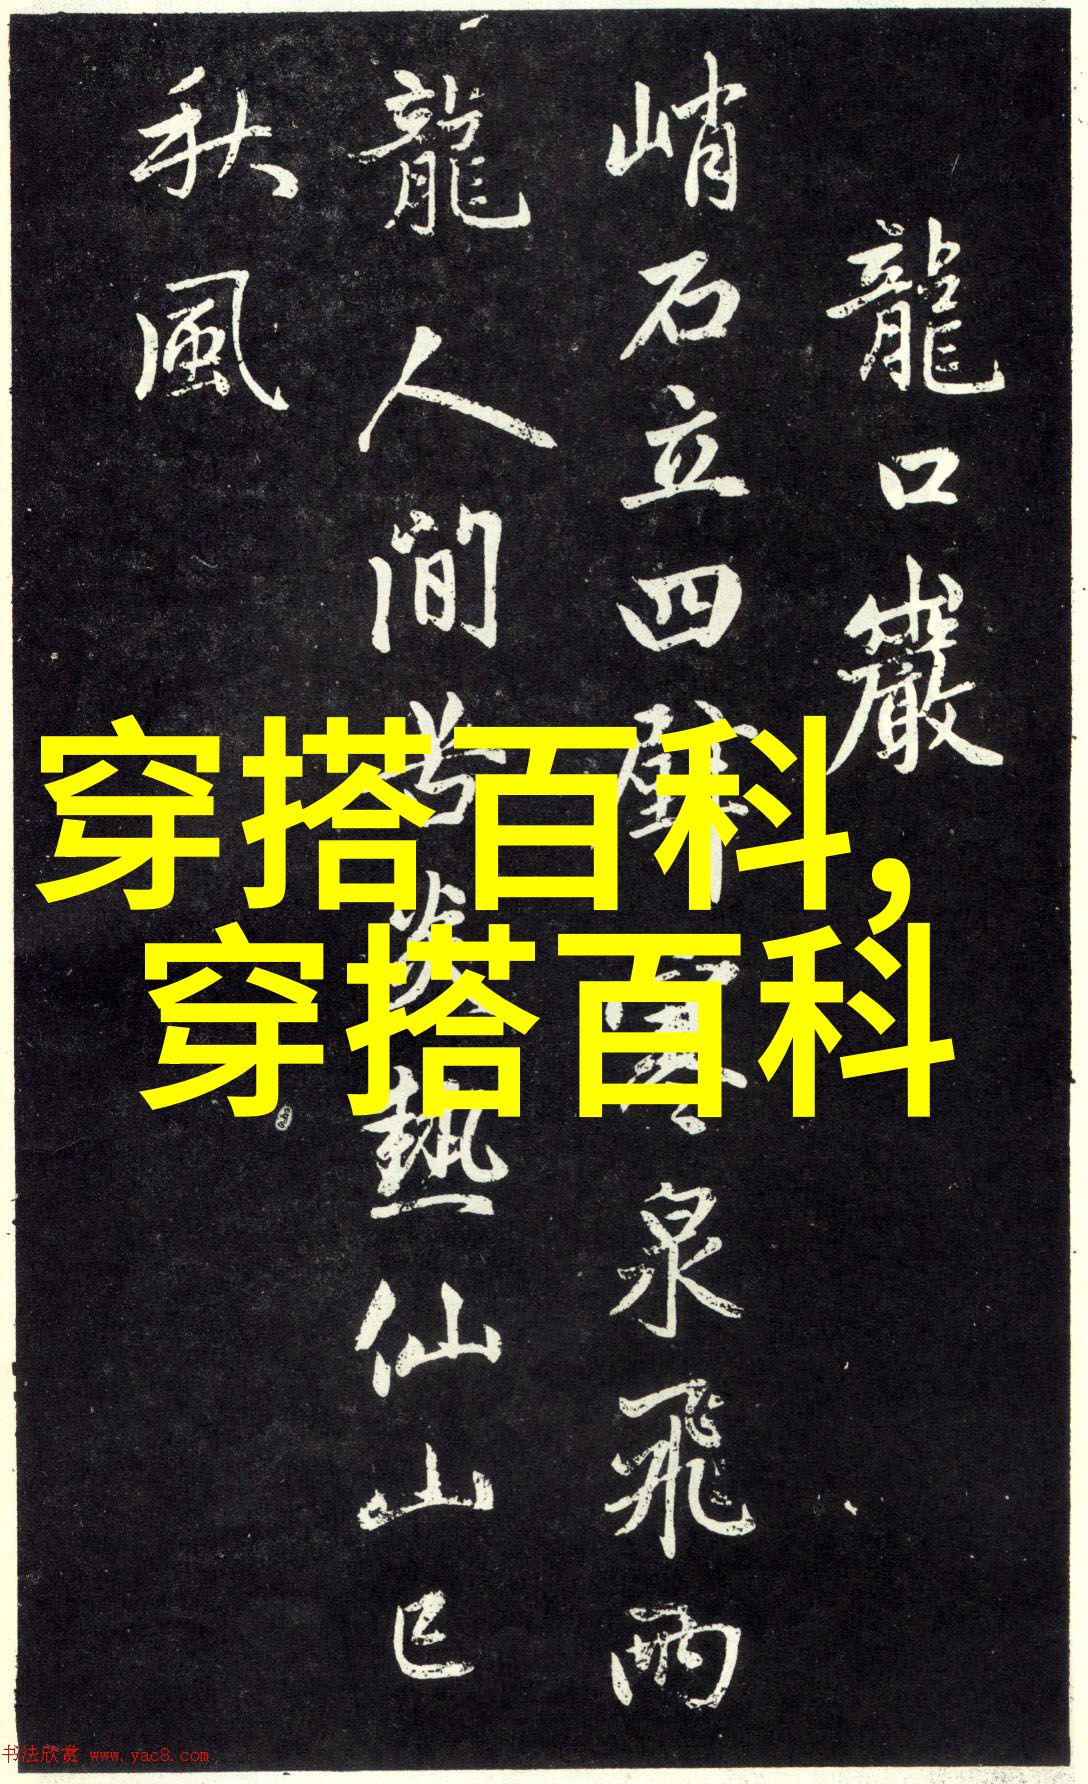 龍口巖
峭石立四壁寒泉飛兩
龍人間苦炎熱仙山已
秋風
穿搭百科,
穿搭百科
书法欣赏 www.yac8.com